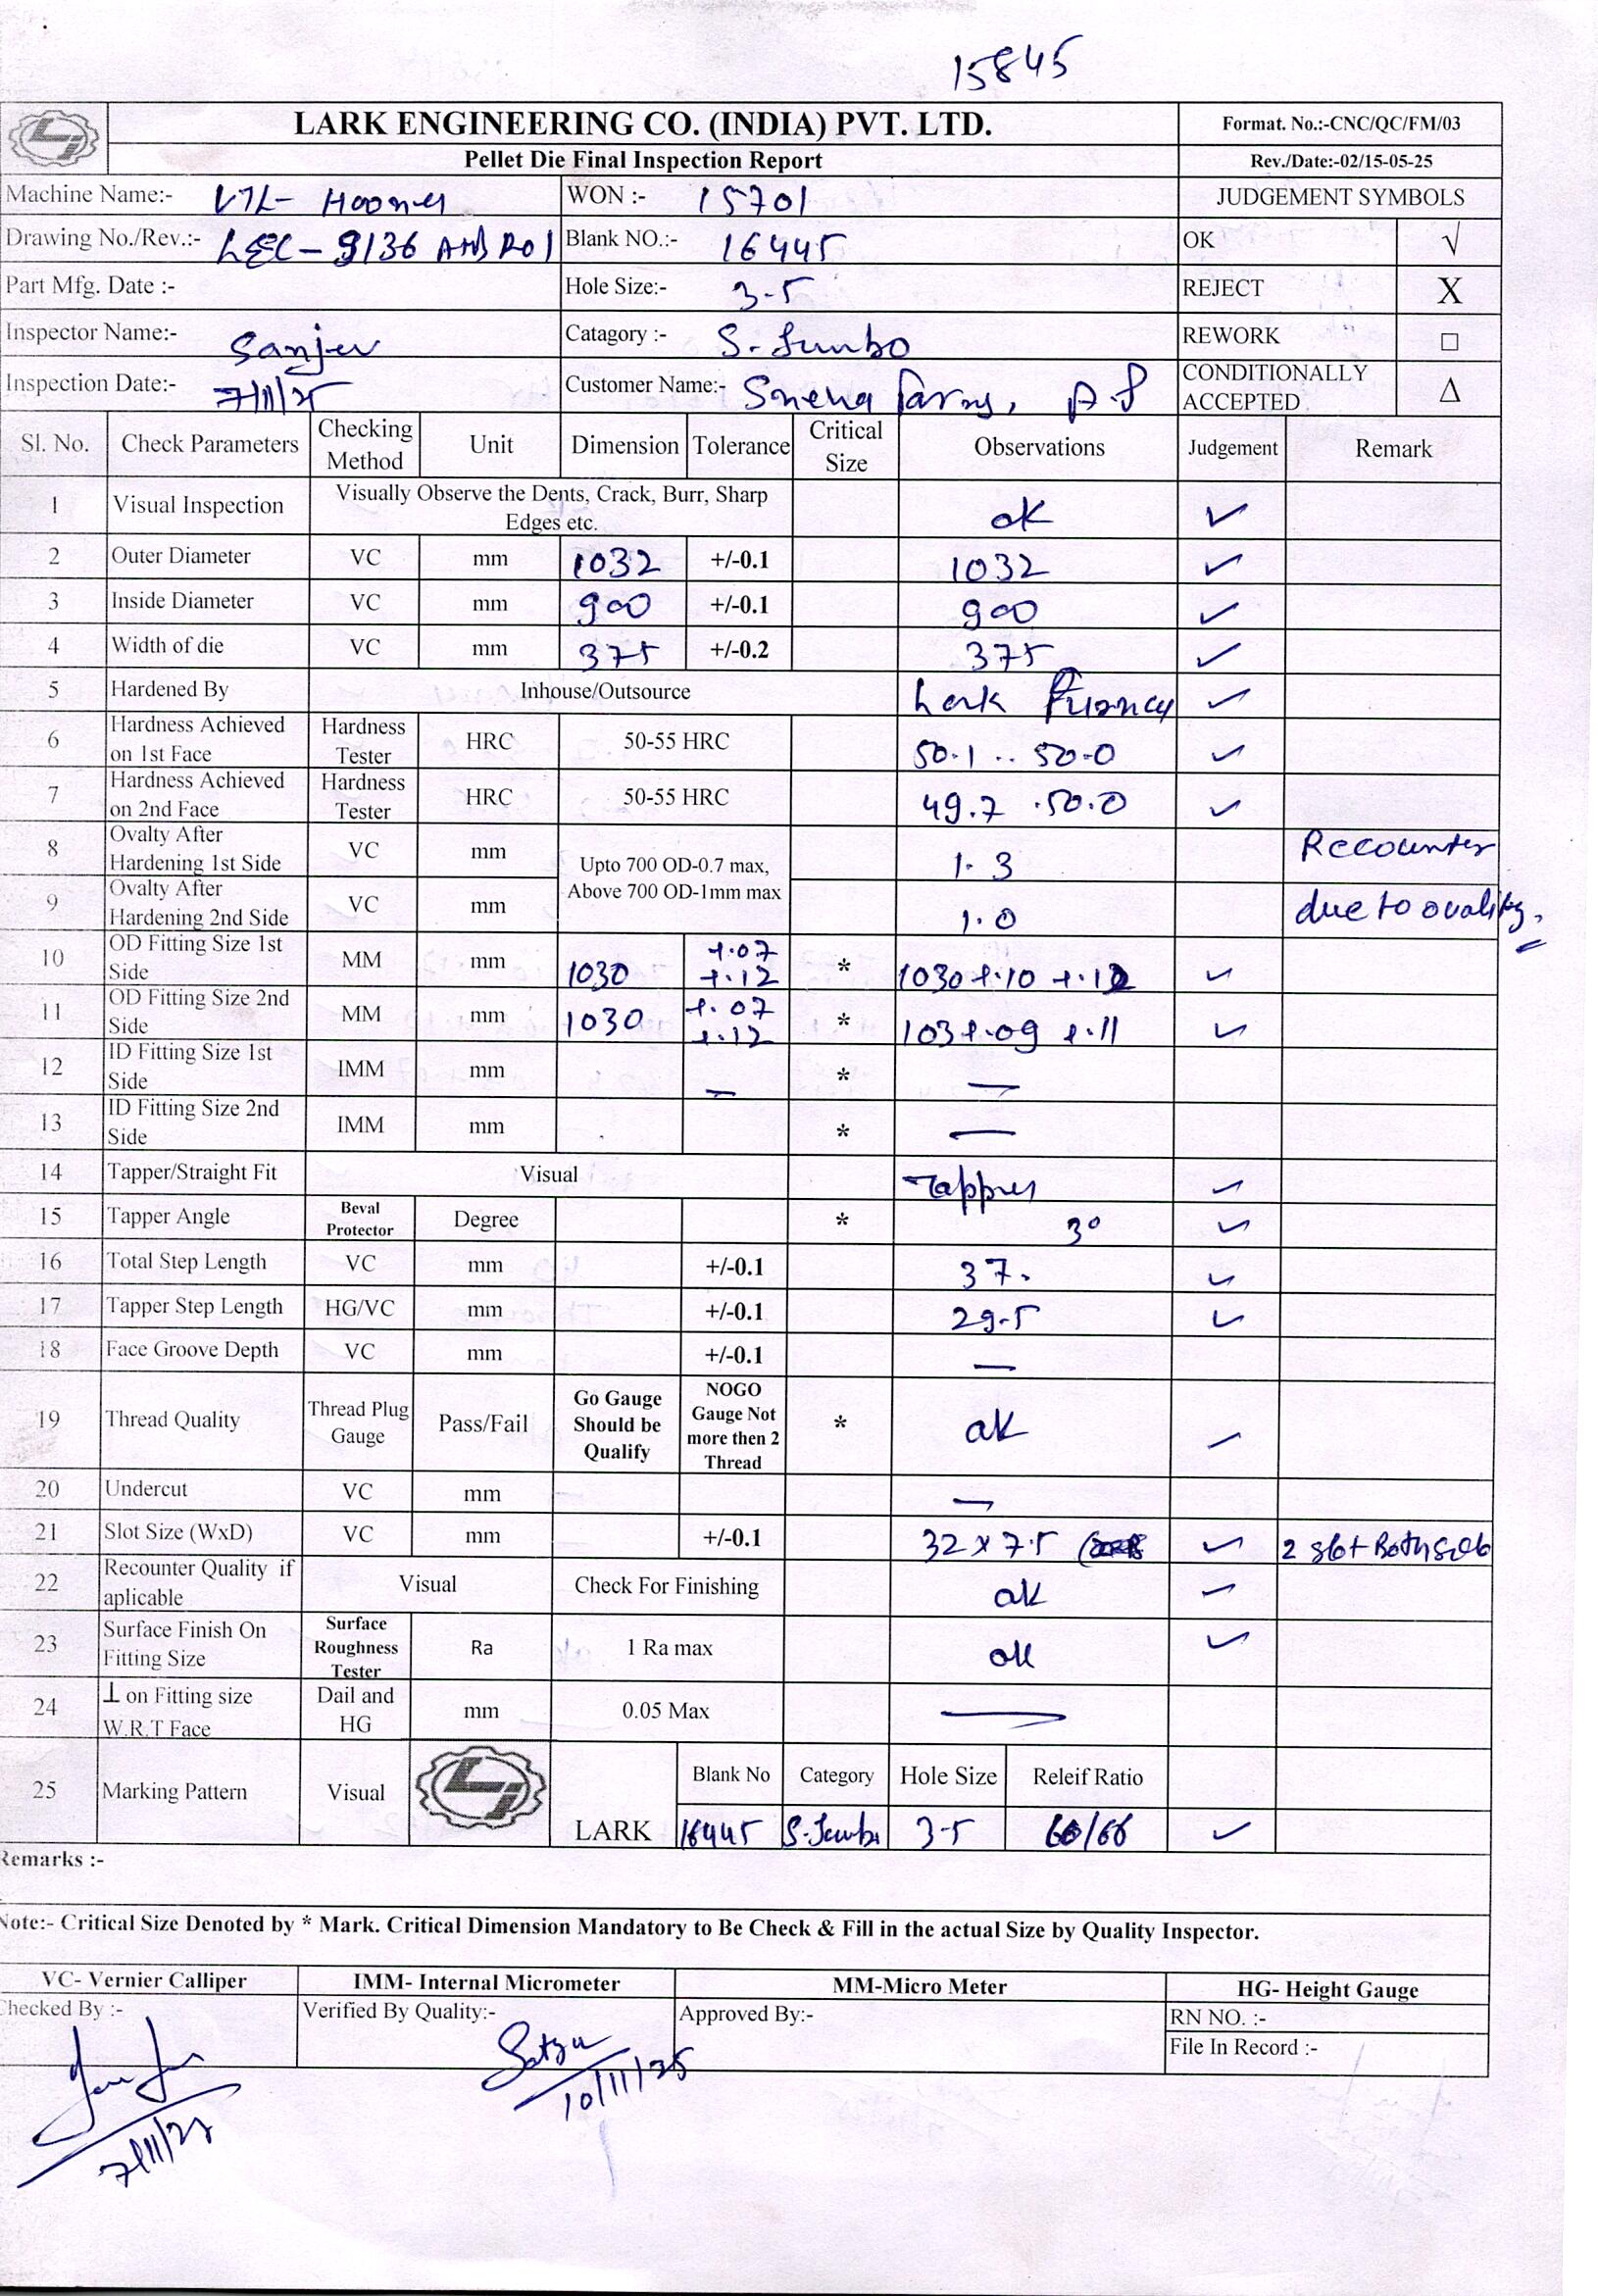 15845
LARK ENGINEERING CO. (INDIA) PVT. LTD. Format. No.:-CNC/QC/FM/03
Pellet Die Final Inspection Report Rev./Date:-02/15-05-25
Machine Name:- VTL- WON :- 15701 JUDGEMENT SYMBOLS
Drawing No./Rev.:- LEC-9136 R01 Blank NO.:- 16445 OK √
Part Mfg. Date :- Hole Size:- 3.5 REJECT X
Inspector Name:- Sanjev Catagory :- S. Jumbo REWORK □
Inspection Date:- 7/11/25 Customer Name:- Sneha Farms, CONDITIONALLY ACCEPTED Δ
Sl. No. Check Parameters Checking Method Unit Dimension Tolerance Critical Size Observations Judgement Remark
1 Visual Inspection Visually Observe the Dents, Crack, Burr, Sharp Edges etc. ok ✓
2 Outer Diameter VC mm 1032 +/-0.1 1032 ✓
3 Inside Diameter VC mm 900 +/-0.1 900 ✓
4 Width of die VC mm 375 +/-0.2 375 ✓
5 Hardened By Inhouse/Outsource Lark ✓
6 Hardness Achieved on 1st Face Hardness Tester HRC 50-55 HRC 50.1 .. 50.0 ✓
7 Hardness Achieved on 2nd Face Hardness Tester HRC 50-55 HRC 49.7 .50.0 ✓
8 Ovalty After Hardening 1st Side VC mm Upto 700 OD-0.7 max, Above 700 OD-1mm max 1.3 Recounter
9 Ovalty After Hardening 2nd Side VC mm 1.0 due to ovality.
10 OD Fitting Size 1st Side MM mm 1030 +.07 +.12 * 1030 +.10 +.12 ✓
11 OD Fitting Size 2nd Side MM mm 1030 +.07 +.12 * 103+.09 +.11 ✓
12 ID Fitting Size 1st Side IMM mm — * —
13 ID Fitting Size 2nd Side IMM mm * —
14 Tapper/Straight Fit Visual Tapper ✓
15 Tapper Angle Beval Protector Degree * 3° ✓
16 Total Step Length VC mm +/-0.1 37. ✓
17 Tapper Step Length HG/VC mm +/-0.1 29.5 ✓
18 Face Groove Depth VC mm +/-0.1 —
19 Thread Quality Thread Plug Gauge Pass/Fail Go Gauge Should be Qualify NOGO Gauge Not more then 2 Thread * ok ✓
20 Undercut VC mm —
21 Slot Size (WxD) VC mm +/-0.1 32 x 7.5 ✓ 2 slot Both side
22 Recounter Quality if aplicable Visual Check For Finishing ok ✓
23 Surface Finish On Fitting Size Surface Roughness Tester Ra 1 Ra max ok ✓
24 ⊥ on Fitting size W.R.T Face Dail and HG mm 0.05 Max —
25 Marking Pattern Visual LARK Blank No Category Hole Size Releif Ratio
16445 S. Jumbo 3.5 66/66 ✓
Remarks :-
Note:- Critical Size Denoted by * Mark. Critical Dimension Mandatory to Be Check & Fill in the actual Size by Quality Inspector.
VC- Vernier Calliper IMM- Internal Micrometer MM-Micro Meter HG- Height Gauge
Checked By :- Verified By Quality:- Approved By:- RN NO. :-
File In Record :-
10/11/25
7/11/25